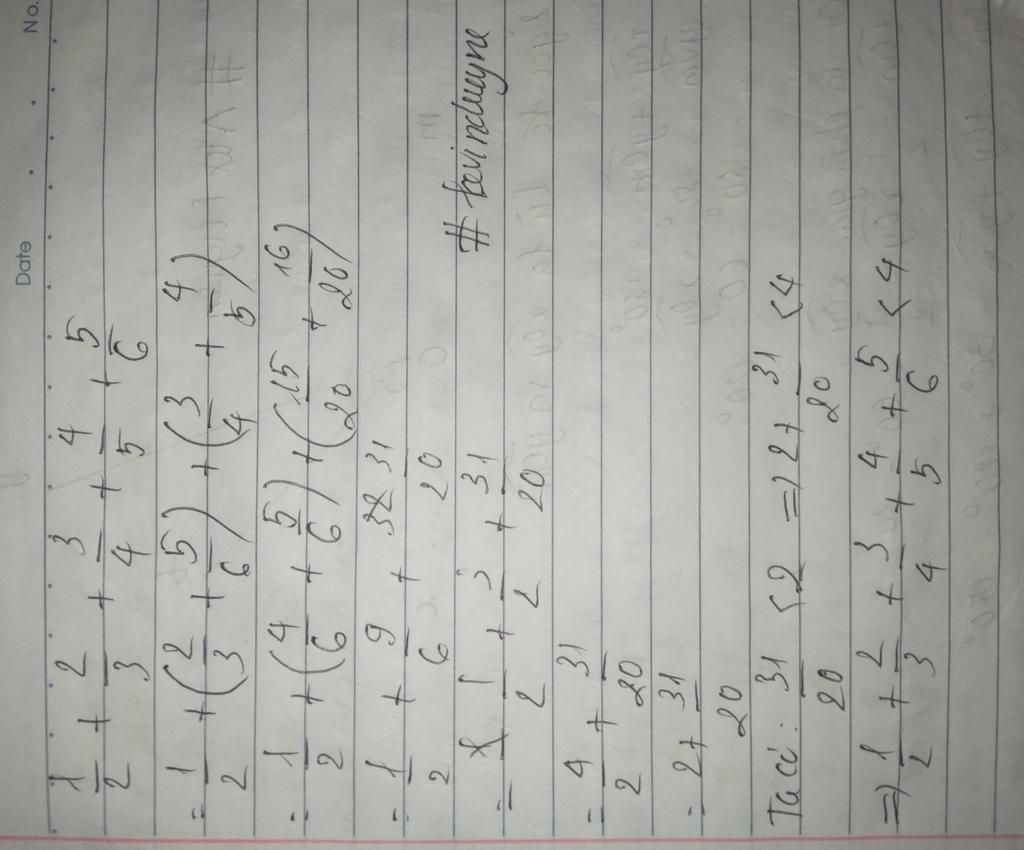 Date No.
1/2 + 2/3 + 3/4 + 4/5 + 5/6
= 1/2 + (2/3 + 5/6) + (3/4 + 4/5)
= 1/2 + (4/6 + 5/6) + (15/20 + 16/20)
= 1/2 + 9/6 + 31/20
= 1/2 + 3/2 + 31/20
#kevinduyne
= 4/2 + 31/20
= 2 + 31/20
Ta có: 31/20 < 2 => 2 + 31/20 < 4
=> 1/2 + 2/3 + 3/4 + 4/5 + 5/6 < 4